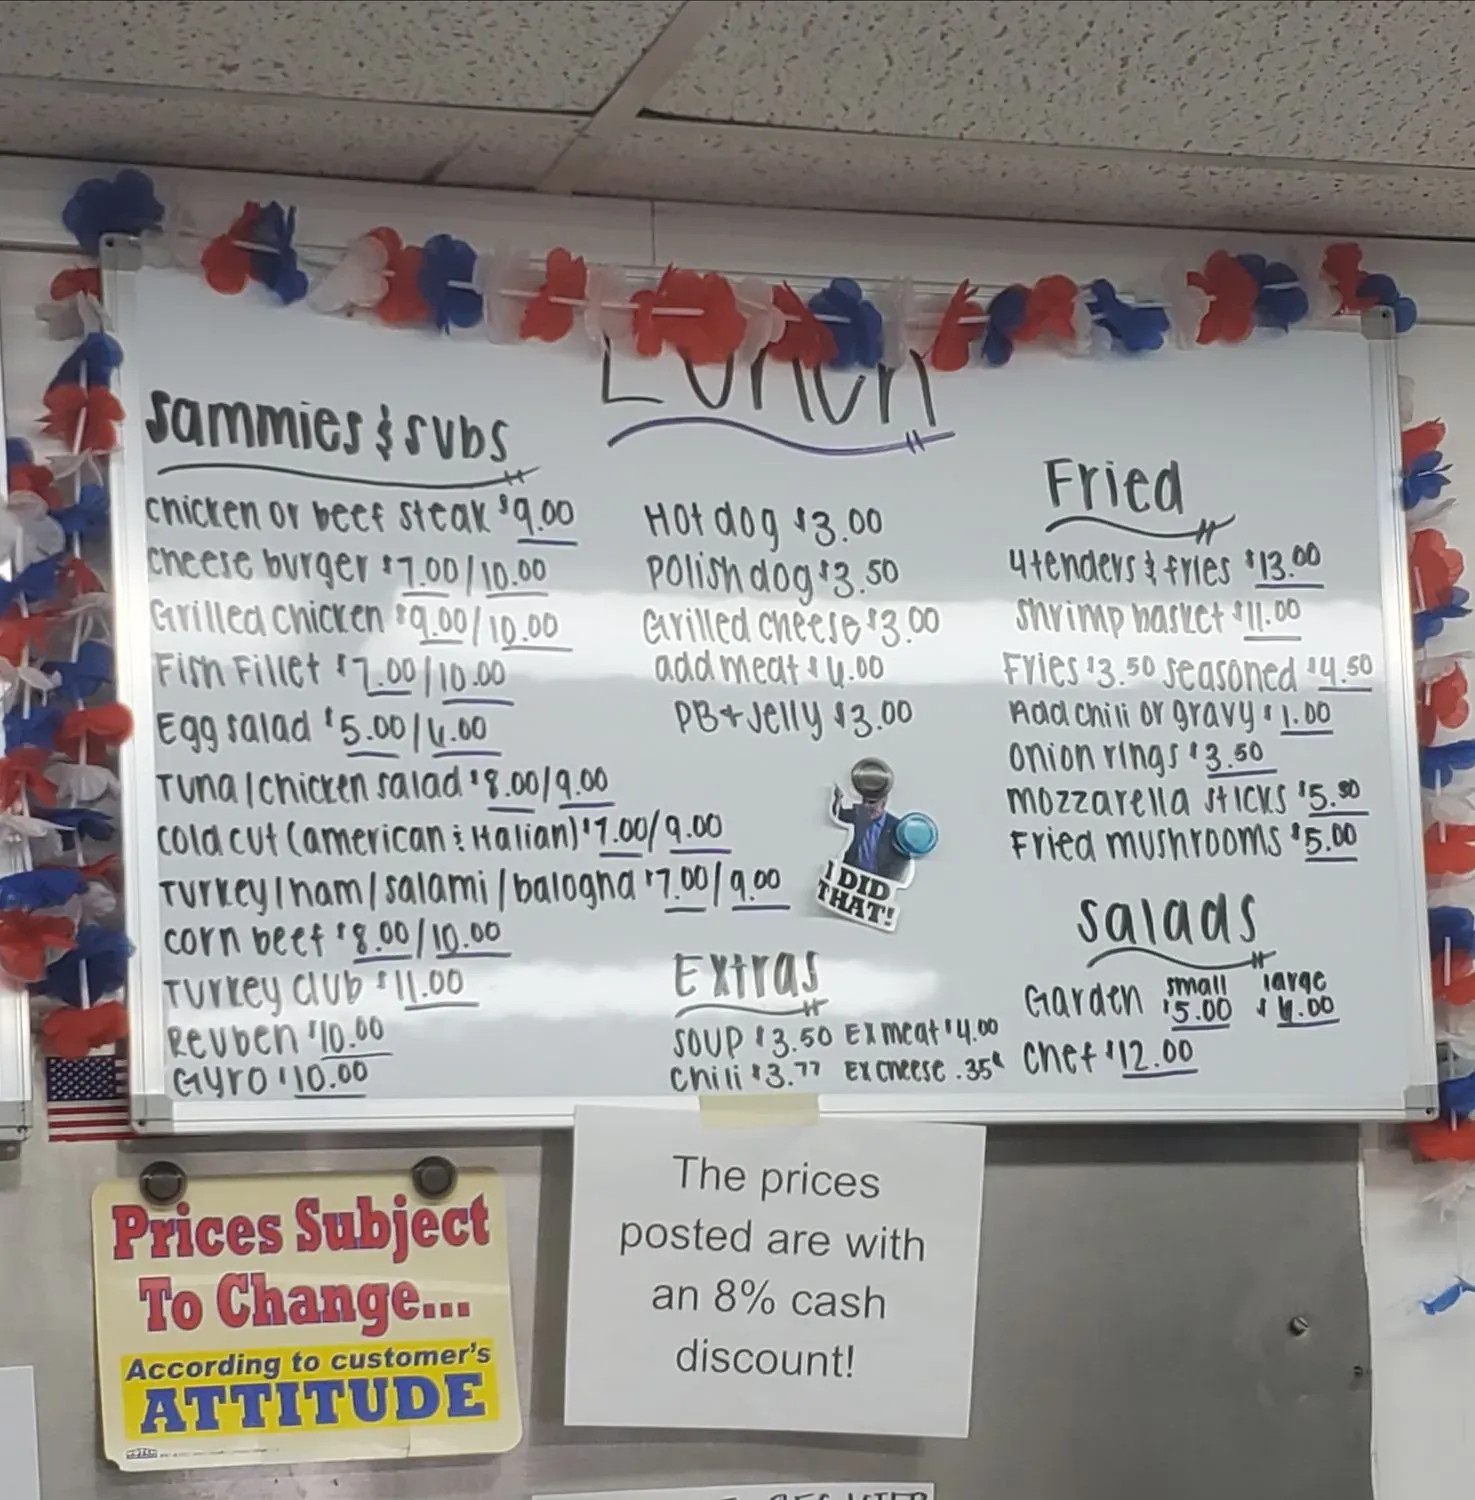 Lunch
Sammies & Subs
Chicken or beef steak $9.00
Cheese burger $7.00/10.00
Grilled chicken $9.00/10.00
Fish Fillet $7.00/10.00
Egg salad $5.00/6.00
Tuna/chicken salad $8.00/9.00
Cold cut (american & Italian) $7.00/9.00
Turkey/ham/salami/balogna $7.00/9.00
corn beef $8.00/10.00
Turkey club $11.00
Reuben $10.00
Gyro $10.00
Hot dog $3.00
Polish dog $3.50
Grilled cheese $3.00
add meat $4.00
PB+Jelly $3.00
I DID
THAT!
Extras
Soup $3.50 Ex meat $4.00
Chili $3.77 Ex cheese .35¢
Fried
4 tenders & fries $13.00
Shrimp basket $11.00
Fries $3.50 seasoned $4.50
Add chili or gravy $1.00
Onion rings $3.50
Mozzarella sticks $5.50
Fried mushrooms $5.00
Salads
small large
Garden $5.00 $6.00
Chef $12.00
Prices Subject
To Change...
According to customer's
ATTITUDE
The prices
posted are with
an 8% cash
discount!